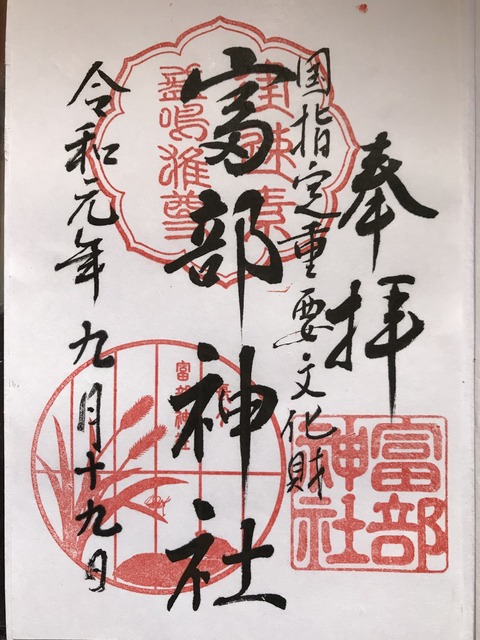 奉拝
国指定重要文化財
富部神社
令和元年九月十九日
富部
神社
富部神社